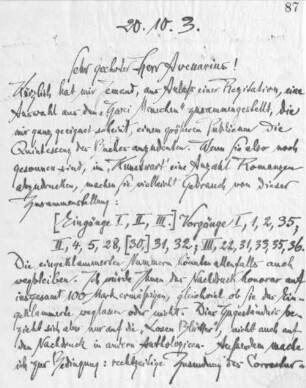 87
20. 10. 3.
Sehr geehrter Herr Avenarius!
Kürzlich hat mir jemand, aus Anlaß einer Rezitation, eine
Auswahl aus den "Zwei Menschen" zusammengestellt, die
mir ganz geeignet scheint, einem größeren Publicum die
Quintessenz des Buches anzudeuten. Wenn Sie also noch
gesonnen sind, im "Kunstwart" eine Anzahl Romanzen
abzudrucken, machen Sie vielleicht Gebrauch von dieser
Zusammenstellung:
[Eingänge I, II, III.] Vorgänge I, 1, 2, 35;
II, 4, 5, 28, [30], 31, 32; III, 22, 31, 33, 35, 36.
Die eingeklammerten Nummern könnten allenfalls auch
wegbleiben. Ich würde Ihnen das Nachdruckhonorar auf
insgesamt 100 Mark ermäßigen, gleichviel ob Sie das Ein-
geklammerte weglassen oder nicht. Dies Zugeständnis be-
zieht sich aber nur auf die "Losen Blätter", nicht auch auf
den Nachdruck in andern Anthologieen. Außerdem mache
ich zur Bedingung: rechtzeitige Zusendung der Correctur